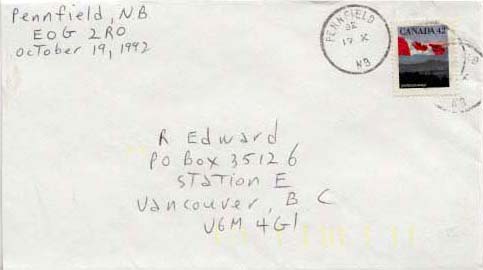 Pennfield, NB
E0G 2R0
October 19, 1992
PENNFIELD
92
19 X
NB
CANADA 42
NB
R Edward
PO Box 35126
Station E
Vancouver, B C
V6M 4G1